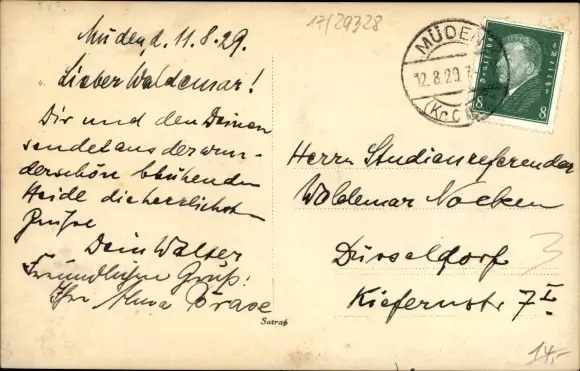 Müden, d. 11.8.29.
Lieber Waldemar!
Dir und den Deinen
sendet aus der wun-
derschön blühenden
Heide die herrlichsten
Grüße
Dein Walter
Freundlichen Gruß!
Ihre
Satrap
17/29328
MÜDEN
12.8.29
Deutsches Reich
8 8
Herrn Studienreferendar
Waldemar
Düsseldorf
Kiefernstr 7 I.
3
14,-